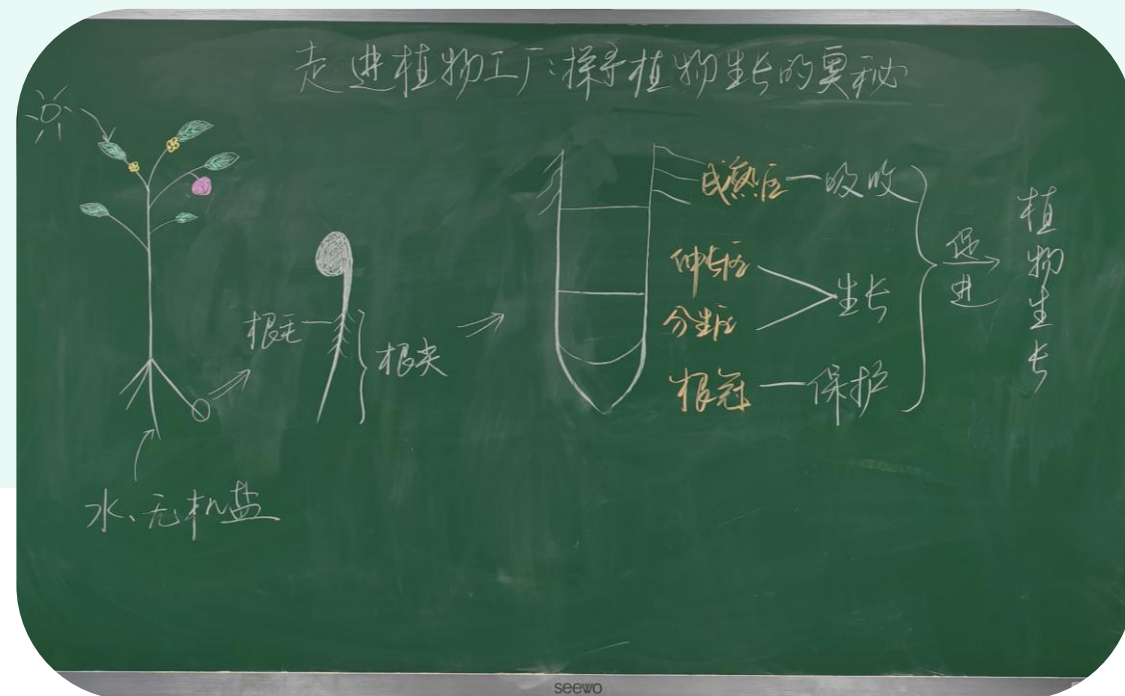 走进植物工厂:探寻植物生长的奥秘
成熟区—吸收
伸长区
分生区
生长
根冠—保护
促进
植物生长
根毛
根尖
水、无机盐
seewo